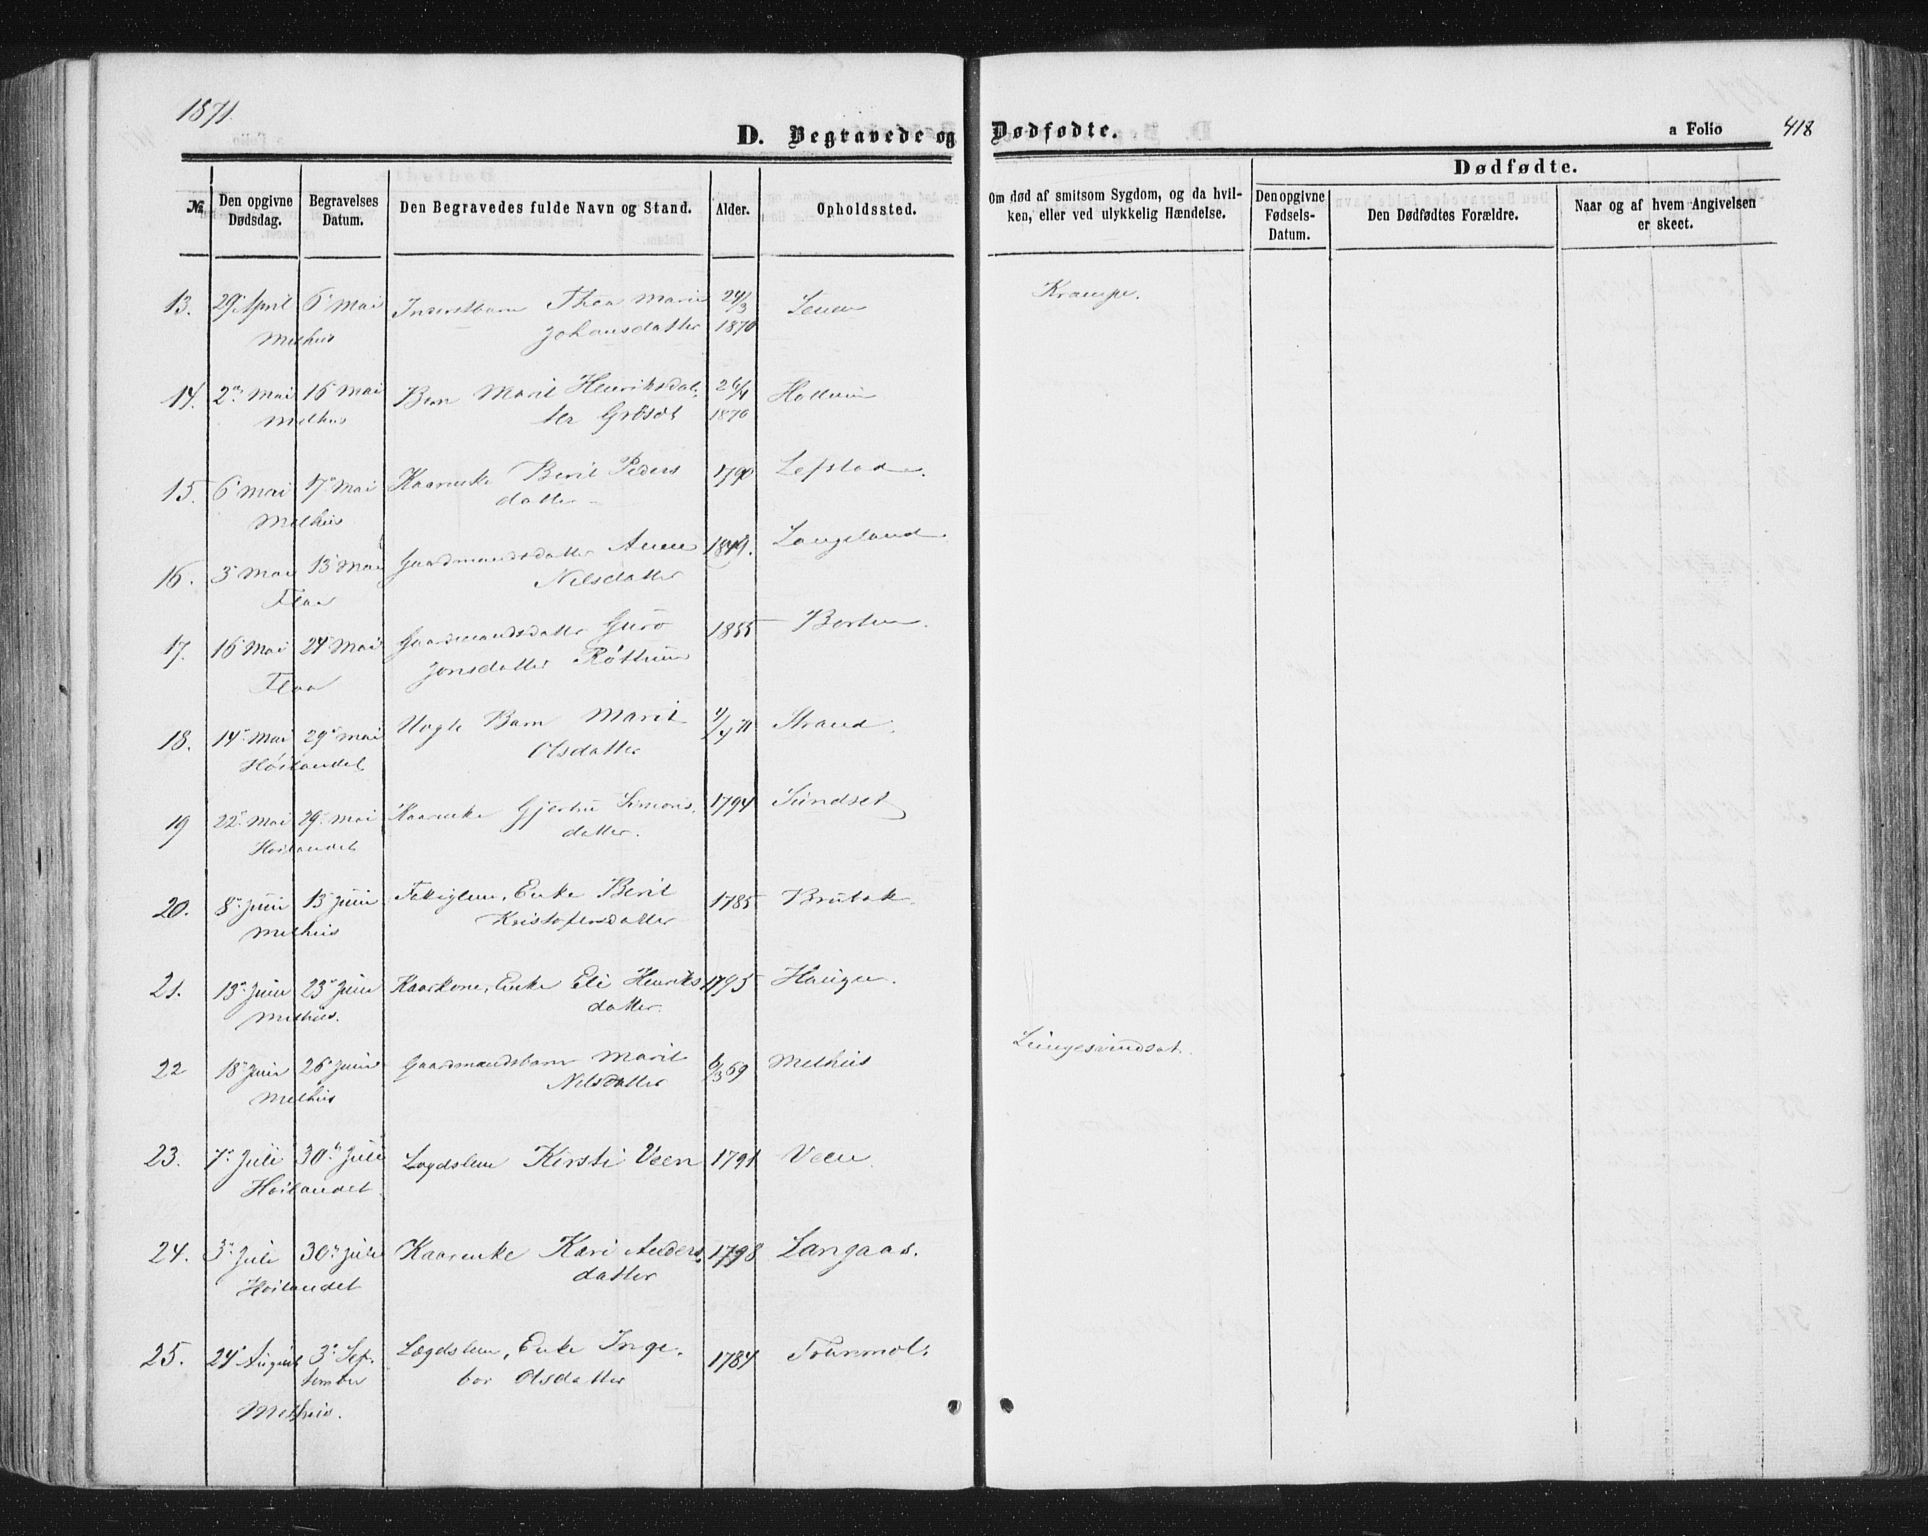 1871.
D. Begravede og Dødfødte.
a Folio 418
Dødfødte.
№ Den opgivne Dødsdag. Begravelses Datum. Den Begravedes fulde Navn og Stand. Alder. Opholdssted. Om død af smitsom Sygdom, og da hvilken, eller ved ulykkelig Hændelse. Den opgivne Fødsels-Datum. Den Dødfødtes Forældre. Naar og af hvem Angivelsen er skeet.
13. 29 April 6 Mai Thea Marie 24/3 Krampe.
Melhus Johansdatter 1870
14. 2 Mai 16 Mai Barn Marit Henriksdat- 26/4
Melhus ter 1870
15. 6 Mai 17 Mai Kaarenke Berit Peders 1790 Lefstad.
Melhus datter
16. 3 Mai 13 Mai Gaardmandsdatter Anne 1849. Langeland
Flaa Nilsdatter
17. 16 Mai 24 Mai Gaardmandsdatter Guro 1855 Borten.
Flaa Jonsdatter
18. 14 Mai 29 Mai Uægte Barn Marit 71 Strand.
Høilandet Olsdatter
19 22 Mai 29 Mai Kaarenke Gjertru Simons- 1794 Sundset
Høilandet datter.
20. 8 Juni 15 Juni Enke Berit 1785 Brubak.
Melhus Kristofersdatter
21. 13 Juni 23 Juni Kaarkone, Enke Eli Henriks 1795 Haugen.
Melhus. datter.
22 18 Juni 26 Juni Gaardmandsbarn Marit 6/3 69 Melhus Lungesvindsot.
Melhus Nilsdatter
23. 7 Juli 30 Juli Lægdslem Kirsti Veen 1791 Veen.
Høilandet
24. 3 Juli 30 Juli Kaarenke Kari Anders- 1798 Langaas.
Høilandet datter
25. 24 August 3 Sep- Lægdslem, Enke Inge- 1784
tember bor Olsdatter
Melhus.